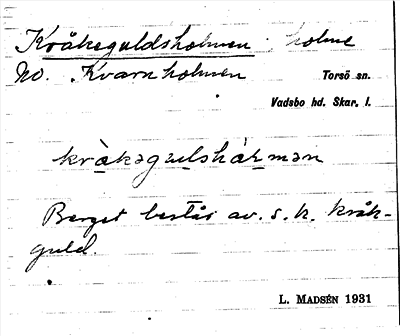 Kråkeguldsholmen holme
NO. Kvarnholmen Torsö sn.
Vadsbo hd. Skar. l.
kråkəgulshårmən
Berget består av s.k. kråk-
guld.
L. MADSÉN 1931